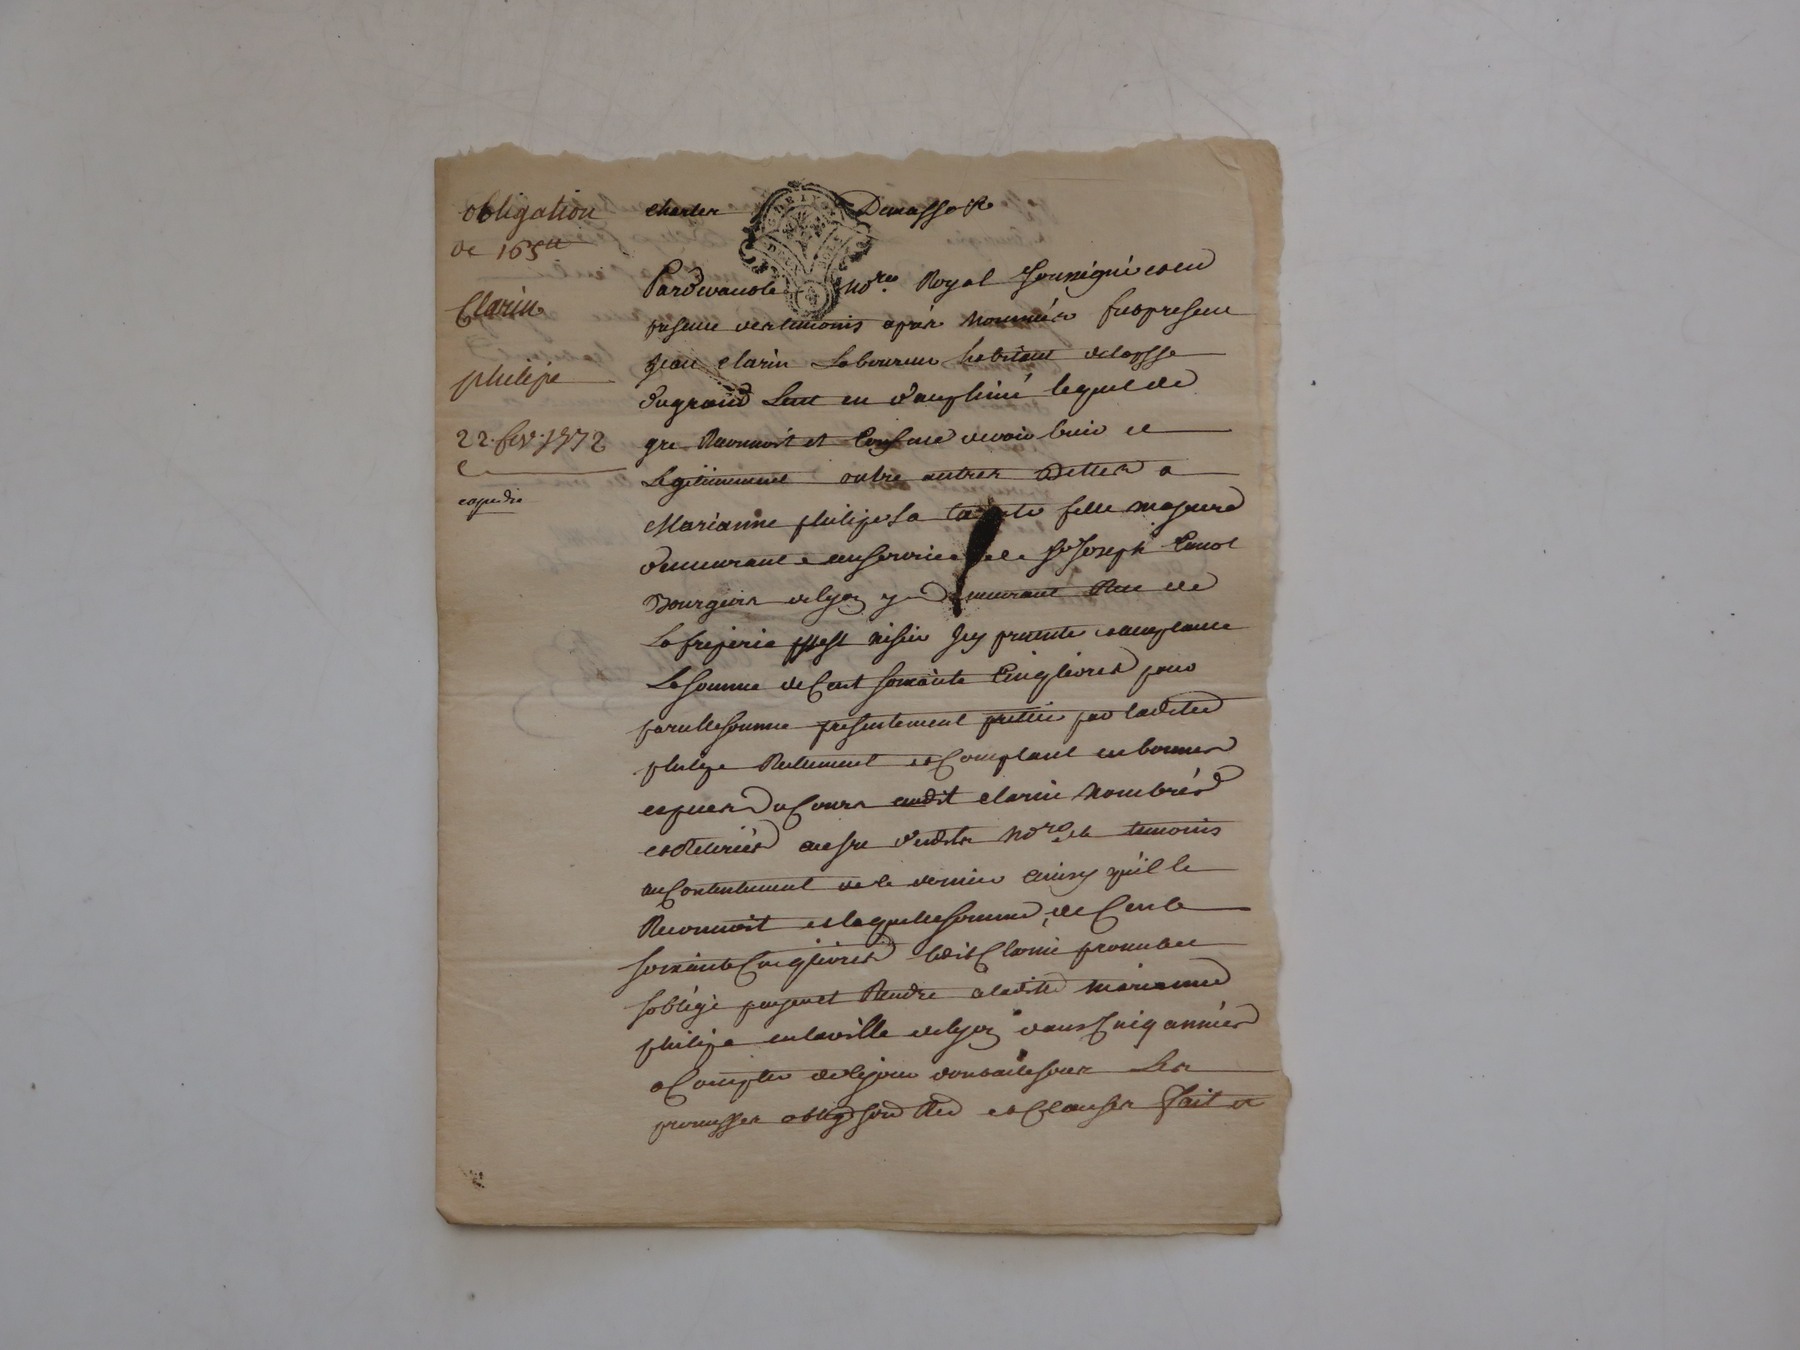 obligation
de 165tt
Clarin
philipe
22. fev. 1772
expedie
Pardevant le no.re Royal soussigné et en
presence des temoins après nommés fut present
Jean Clarin Laboureur habitant de
du grand Lent en Dauphiné lequel de
gré Reconnoit et Confesse devoir bien et
Legitimement outre autres Dettes a
Marianne philipe fille majeure
demeurante au service de Sr Joseph
Bourgeois de lyon y demeurant Rue de
La friperie icy presente et acceptante
La somme de Cent soixante Cinq livres pour
pareille somme presentement prêtée par laditte
philipe Réellement et Comptant en bonnes
especes du Cours audit Clarin Nombrés
et Retirées au vû dudit No.re et temoins
au Contentement de ce dernier ainsy qu'il le
Reconnoit et laquelle somme de Cent
soixante Cinq livres ledit Clarin promet et
s'oblige payer et Rendre a laditte marianne
philipe en la ville de lyon dans Cinq années
a Compter de ce jour
promesses oblig et Clauses fait et